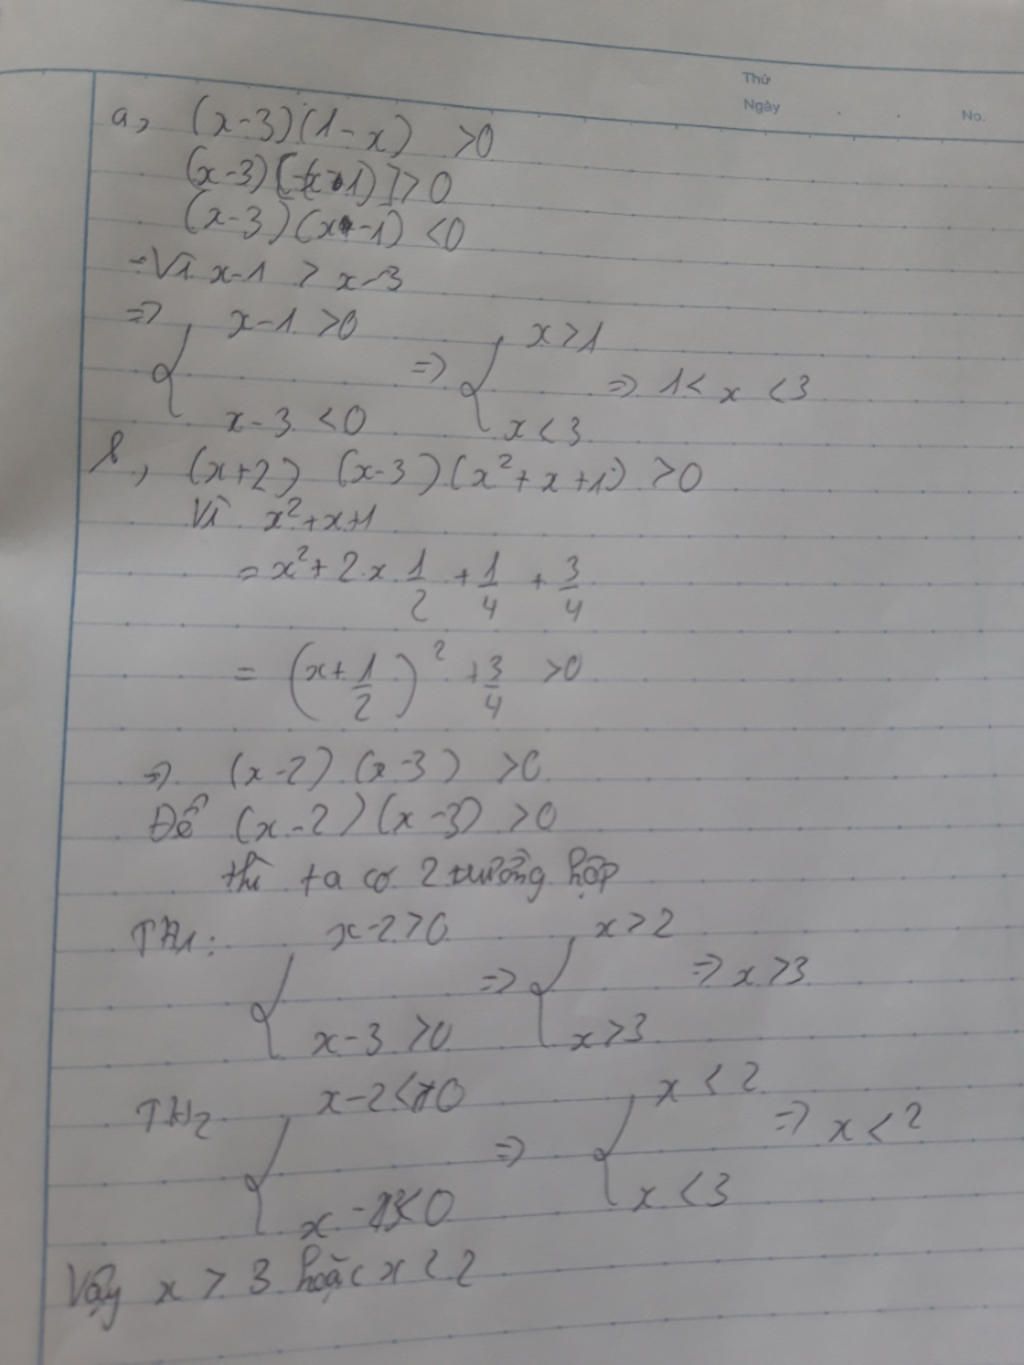 Thứ
Ngày
No.
a, (x-3)(1-x) >0
(x-3)[-(x-1)]>0
(x-3)(x-1) <0
Vì x-1 > x-3
=> { x-1 >0 => { x>1 => 1< x <3
x-3 <0 x<3
b, (x+2) (x-3)(x²+x+1) >0
Vì x²+x+1
= x²+2.x.1/2 + 1/4 + 3/4
= (x+1/2)² + 3/4 >0
=> (x-2) (x-3) >0
Để (x-2)(x-3) >0
thì ta có 2 trường hợp
TH1: { x-2>0 => { x>2 => x>3
x-3 >0 x>3
TH2 { x-2<0 => { x <2 => x<2
x-3<0 x<3
Vậy x > 3 hoặc x < 2